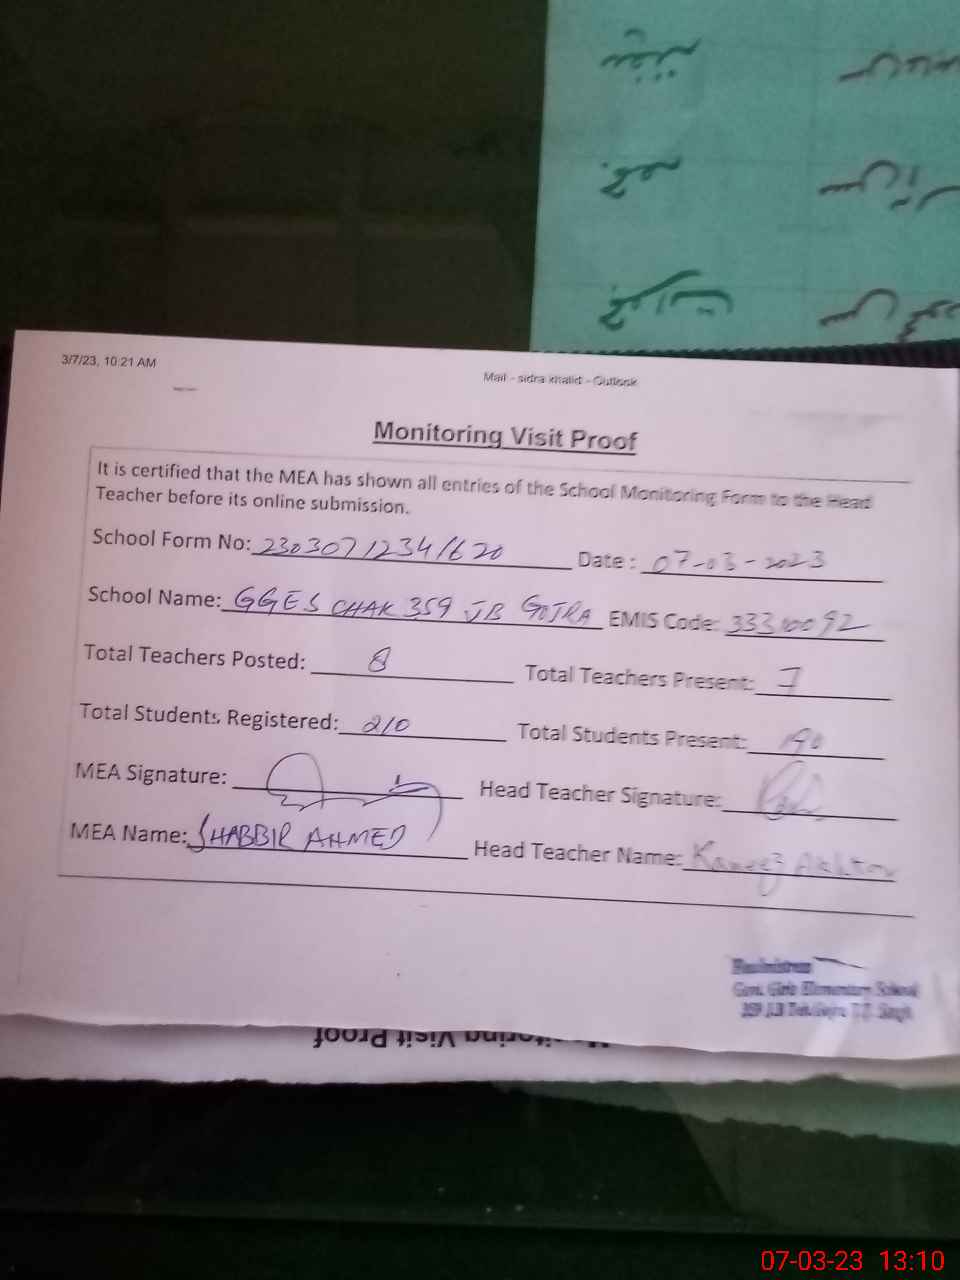 3/7/23, 10:21 AM
Mail - sidra khalid - Outlook
Monitoring Visit Proof
It is certified that the MEA has shown all entries of the School Monitoring Form to the Head
Teacher before its online submission.
School Form No: 23030712341620 Date : 07-03-2023
School Name: GGES CHAK 359 JB GOJRA EMIS Code: 33310092
Total Teachers Posted: 8 Total Teachers Present: 7
Total Students Registered: 210 Total Students Present: 190
MEA Signature: Head Teacher Signature:
MEA Name: SHABBIR AHMED Head Teacher Name: Kaneez Akhtar
Headmistress
Govt. Girls Elementary School
359 J.B Teh. Gojra T.T. Singh
Monitoring Visit Proof
07-03-23 13:10